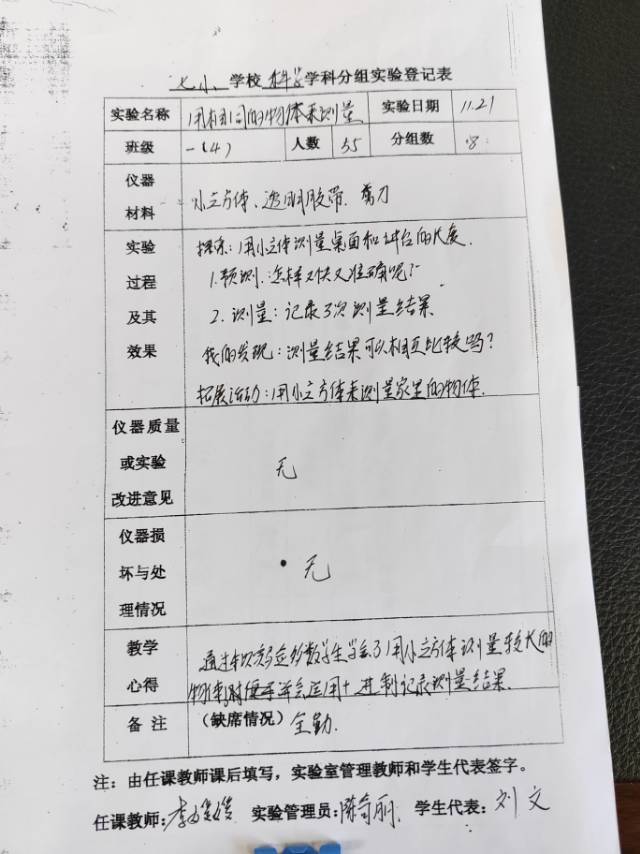 七小 学校 科学 学科分组实验登记表
实验名称 用相同的物体来测量 实验日期 11.21
班级 一(4) 人数 55 分组数 8
仪器
材料
小立方体、透明胶带、剪刀
实验
过程
及其
效果
探索:用小立体测量桌面和讲台的长度.
1.预测:怎样又快又准确呢?
2.测量:记录3次测量结果
我的发现:测量结果可以相互比较吗?
拓展活动:用小立方体来测量家里的物体.
仪器质量
或实验
改进意见
无
仪器损
坏与处
理情况
无
教学
心得
通过 多数学生学会了用小立方体测量较长的
物体时 应用十进制记录测量结果.
备注 (缺席情况) 全勤.
注:由任课教师课后填写,实验室管理教师和学生代表签字。
任课教师: 李 实验管理员:陈奇丽. 学生代表:刘文